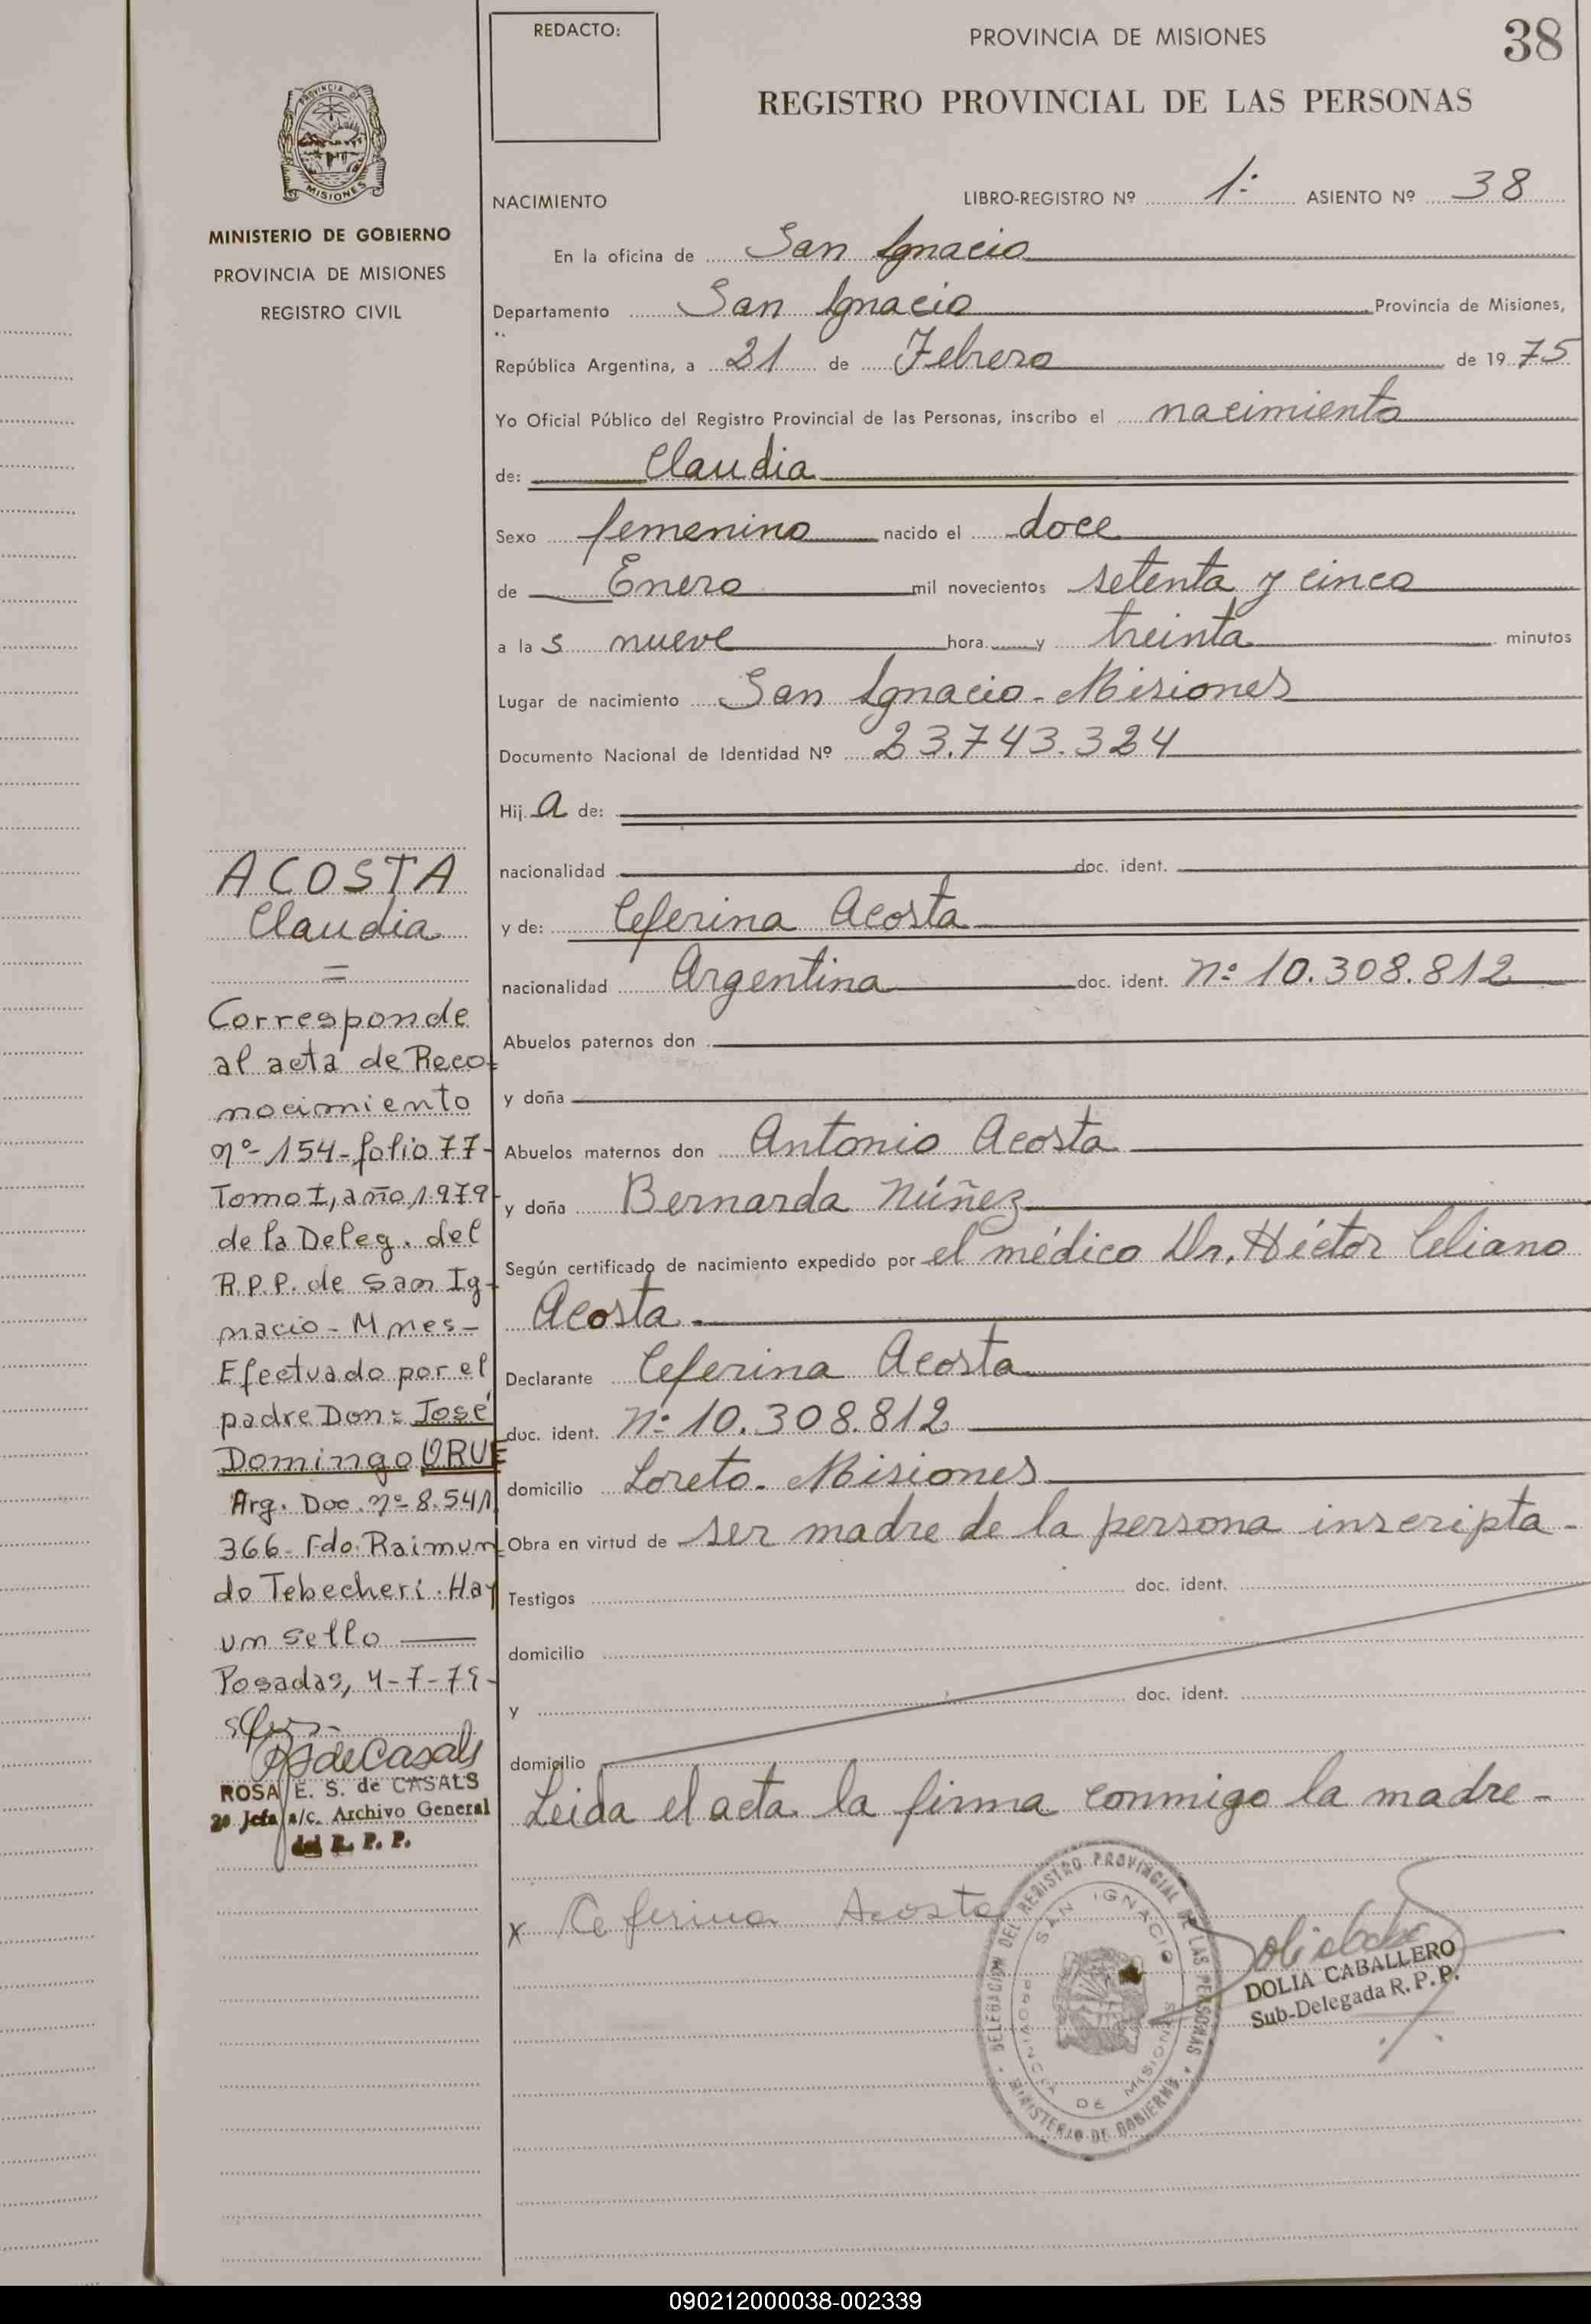 REDACTO:
PROVINCIA DE MISIONES
38
REGISTRO PROVINCIAL DE LAS PERSONAS
PROVINCIA DE
MISIONES
MINISTERIO DE GOBIERNO
PROVINCIA DE MISIONES
REGISTRO CIVIL
NACIMIENTO
LIBRO-REGISTRO Nº 1º ASIENTO Nº 38
En la oficina de San Ignacio
Departamento San Ignacio Provincia de Misiones,
República Argentina, a 21 de Febrero de 1975
Yo Oficial Público del Registro Provincial de las Personas, inscribo el nacimiento
de: Claudia
Sexo femenino nacido el doce
de Enero mil novecientos setenta y cinco
a la s nueve hora y treinta minutos
Lugar de nacimiento San Ignacio - Misiones
Documento Nacional de Identidad Nº 23.743.324
Hij a de:
nacionalidad doc. ident.
y de: Ceferina Acosta
nacionalidad Argentina doc. ident. Nº 10.308.812
Abuelos paternos don
y doña
Abuelos maternos don Antonio Acosta
y doña Bernarda Núñez
Según certificado de nacimiento expedido por el médico Dr. Héctor Celiano
Acosta.
Declarante Ceferina Acosta
doc. ident. Nº 10.308.812
domicilio Loreto - Misiones
Obra en virtud de ser madre de la persona inscripta -
Testigos doc. ident.
domicilio
y doc. ident.
domicilio
Leida el acta la firma conmigo la madre -
x Ceferina Acosta
DELEGACION DEL REGISTRO PROVINCIAL DE LAS PERSONAS
SAN IGNACIO
PROVINCIA DE MISIONES
MINISTERIO DE GOBIERNO
DOLIA CABALLERO
Sub-Delegada R. P. P.
ACOSTA
Claudia
=
Corresponde
al acta de Reco-
nocimiento
nº 154 - folio 77 -
Tomo I, año 1979
de la Deleg. del
R.P.P. de San Ig-
nacio - Mnes -
Efectuado por el
padre Don: José
Domingo URUE
Arg. Doc. nº 8.541.
366 - Fdo: Raimun-
do Tebecheri. Hay
un sello
Posadas, 4-7-79 -
RSdeCasals
ROSA E. S. de CASALS
2º Jefa a/c. Archivo General
del R. P. P.
090212000038-002339